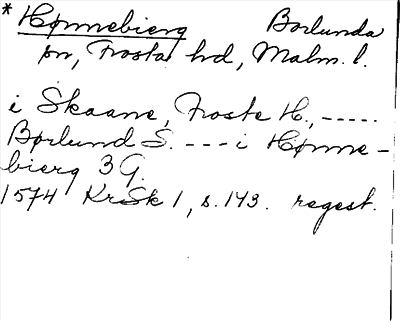 * Hønnebierg Borlunda
sn, Frosta hd, Malm. l.
i Skaane, Froste H., -----
Børlund S. --- i Hønne-
bierg 3 G.
1574 KrSk 1, s. 143. regest.